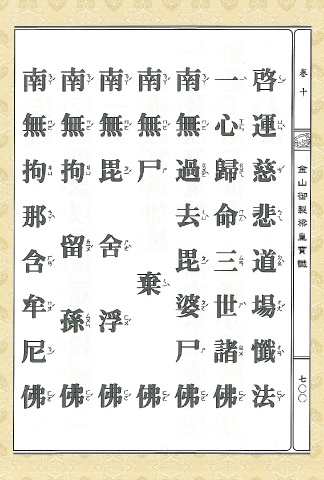 啓運慈悲道場懺法
一心歸命三世諸佛
南無過去毘婆尸佛
南無尸棄佛
南無毘舍浮佛
南無拘留孫佛
南無拘那含牟尼佛
卷十
金山御製梁皇寶懺
七〇〇